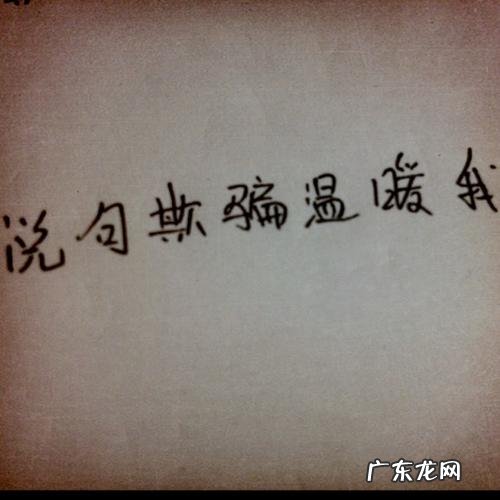 说句欺骗温暖我
广东龙网